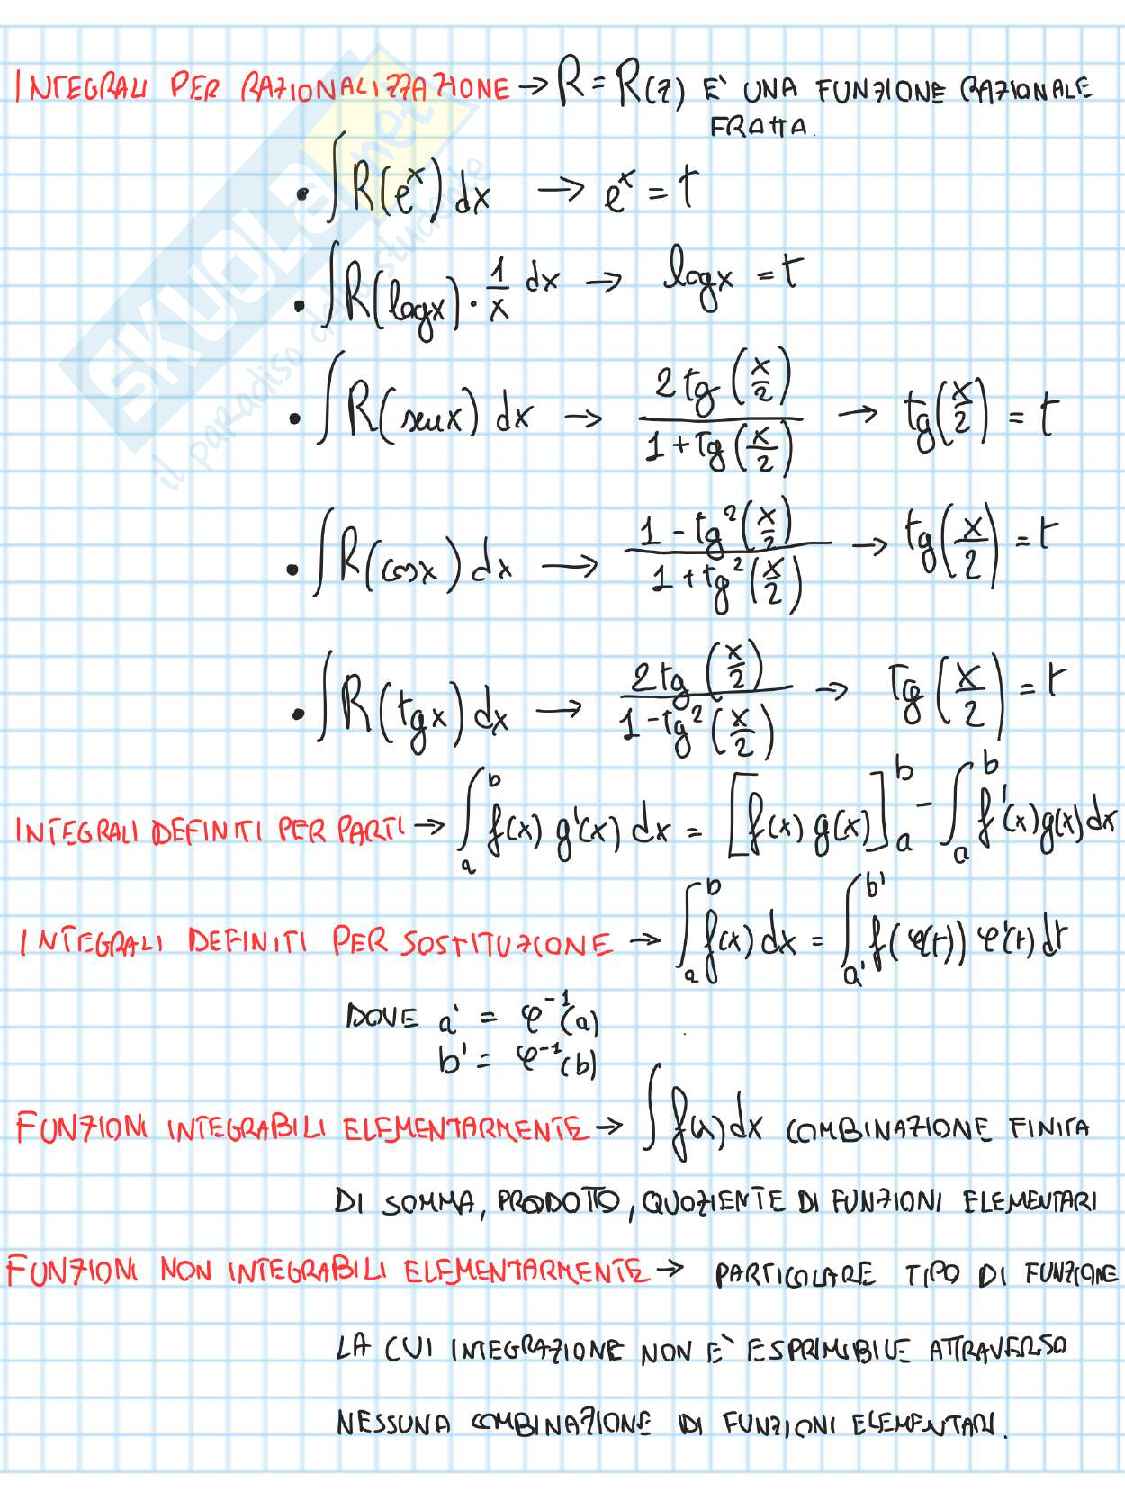 INTEGRALI PER RAZIONALIZZAZIONE → R = R(z) E' UNA FUNZIONE RAZIONALE
FRATTA.
• ∫R(e^x) dx → e^x = t
• ∫R(log x) · 1/x dx → log x = t
• ∫R(sen x) dx → 2tg(x/2) / 1+tg(x/2) → tg(x/2) = t
• ∫R(cos x) dx → 1-tg²(x/2) / 1+tg²(x/2) → tg(x/2) = t
• ∫R(tg x) dx → 2tg(x/2) / 1-tg²(x/2) → tg(x/2) = t
INTEGRALI DEFINITI PER PARTI → ∫_a^b f(x) g'(x) dx = [f(x) g(x)]_a^b - ∫_a^b f'(x)g(x)dx
INTEGRALI DEFINITI PER SOSTITUZIONE → ∫_a^b f(x) dx = ∫_a'^b' f(φ(t)) φ'(t) dt
DOVE a' = φ^-1(a)
b' = φ^-1(b)
FUNZIONI INTEGRABILI ELEMENTARMENTE → ∫f(x)dx COMBINAZIONE FINITA
DI SOMMA, PRODOTTO, QUOZIENTE DI FUNZIONI ELEMENTARI
FUNZIONI NON INTEGRABILI ELEMENTARMENTE → PARTICOLARE TIPO DI FUNZIONE
LA CUI INTEGRAZIONE NON E' ESPRIMIBILE ATTRAVERSO
NESSUNA COMBINAZIONE DI FUNZIONI ELEMENTARI.
SKUOLA.net
il paradiso dello studente